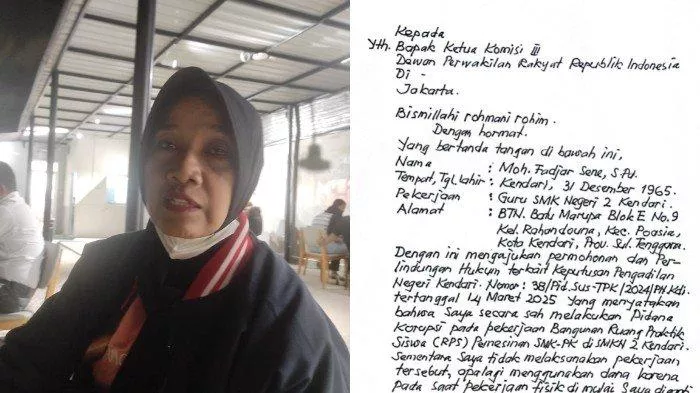 Kepada
Yth. Bapak Ketua Komisi III
Dewan Perwakilan Rakyat Republik Indonesia
Di -
Jakarta.
Bismillahi rohmani rohim.
Dengan hormat.
Yang bertanda tangan di bawah ini,
Nama : Moh. Fadjar Sene, S.Pd.
Tempat, Tgl, lahir : Kendari, 31 Desember 1965.
Pekerjaan : Guru SMK Negeri 2 Kendari.
Alamat : BTN. Batu Marupa Blok E No.9
Kel. Rahandouna, Kec. Poasia,
Kota Kendari, Prov. Sul. Tenggara.
Dengan ini mengajukan permohonan dan Per-
lindungan Hukum terkait Keputusan Pengadilan
Negeri Kendari. Nomor : 38/Pid.Sus-TPK/2024/PN.Kdi.
tertanggal 14 Maret 2025 Yang menyatakan
bahwa Saya secara sah melakukan Pidana
Korupsi pada pekerjaan Bangunan Ruang Praktik
Siswa (RPS) Pemesinan SMK-PK di SMKN 2 Kendari.
Sementara Saya tidak melaksanakan pekerjaan
tersebut, apalagi menggunakan dana karena
pada saat pekerjaan fisik di mulai Saya diganti